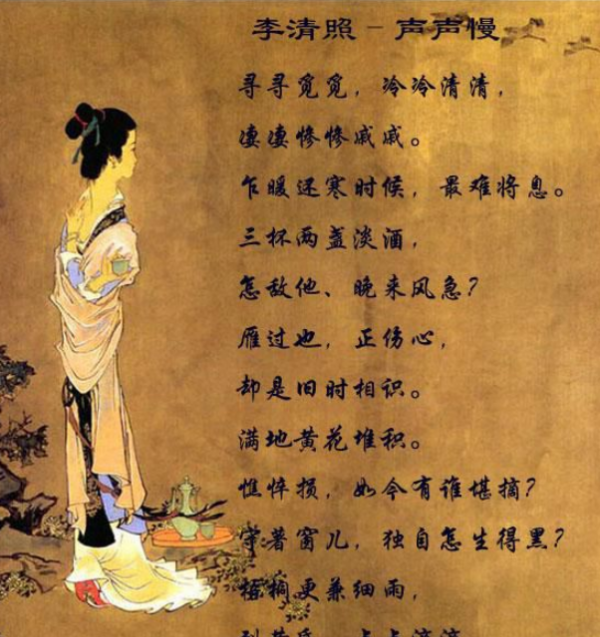 李清照-声声慢
寻寻觅觅，冷冷清清，
凄凄惨惨戚戚。
乍暖还寒时候，最难将息。
三杯两盏淡酒，
怎敌他、晚来风急？
雁过也，正伤心，
却是旧时相识。
满地黄花堆积。
憔悴损，如今有谁堪摘？
守著窗儿，独自怎生得黑？
梧桐更兼细雨，